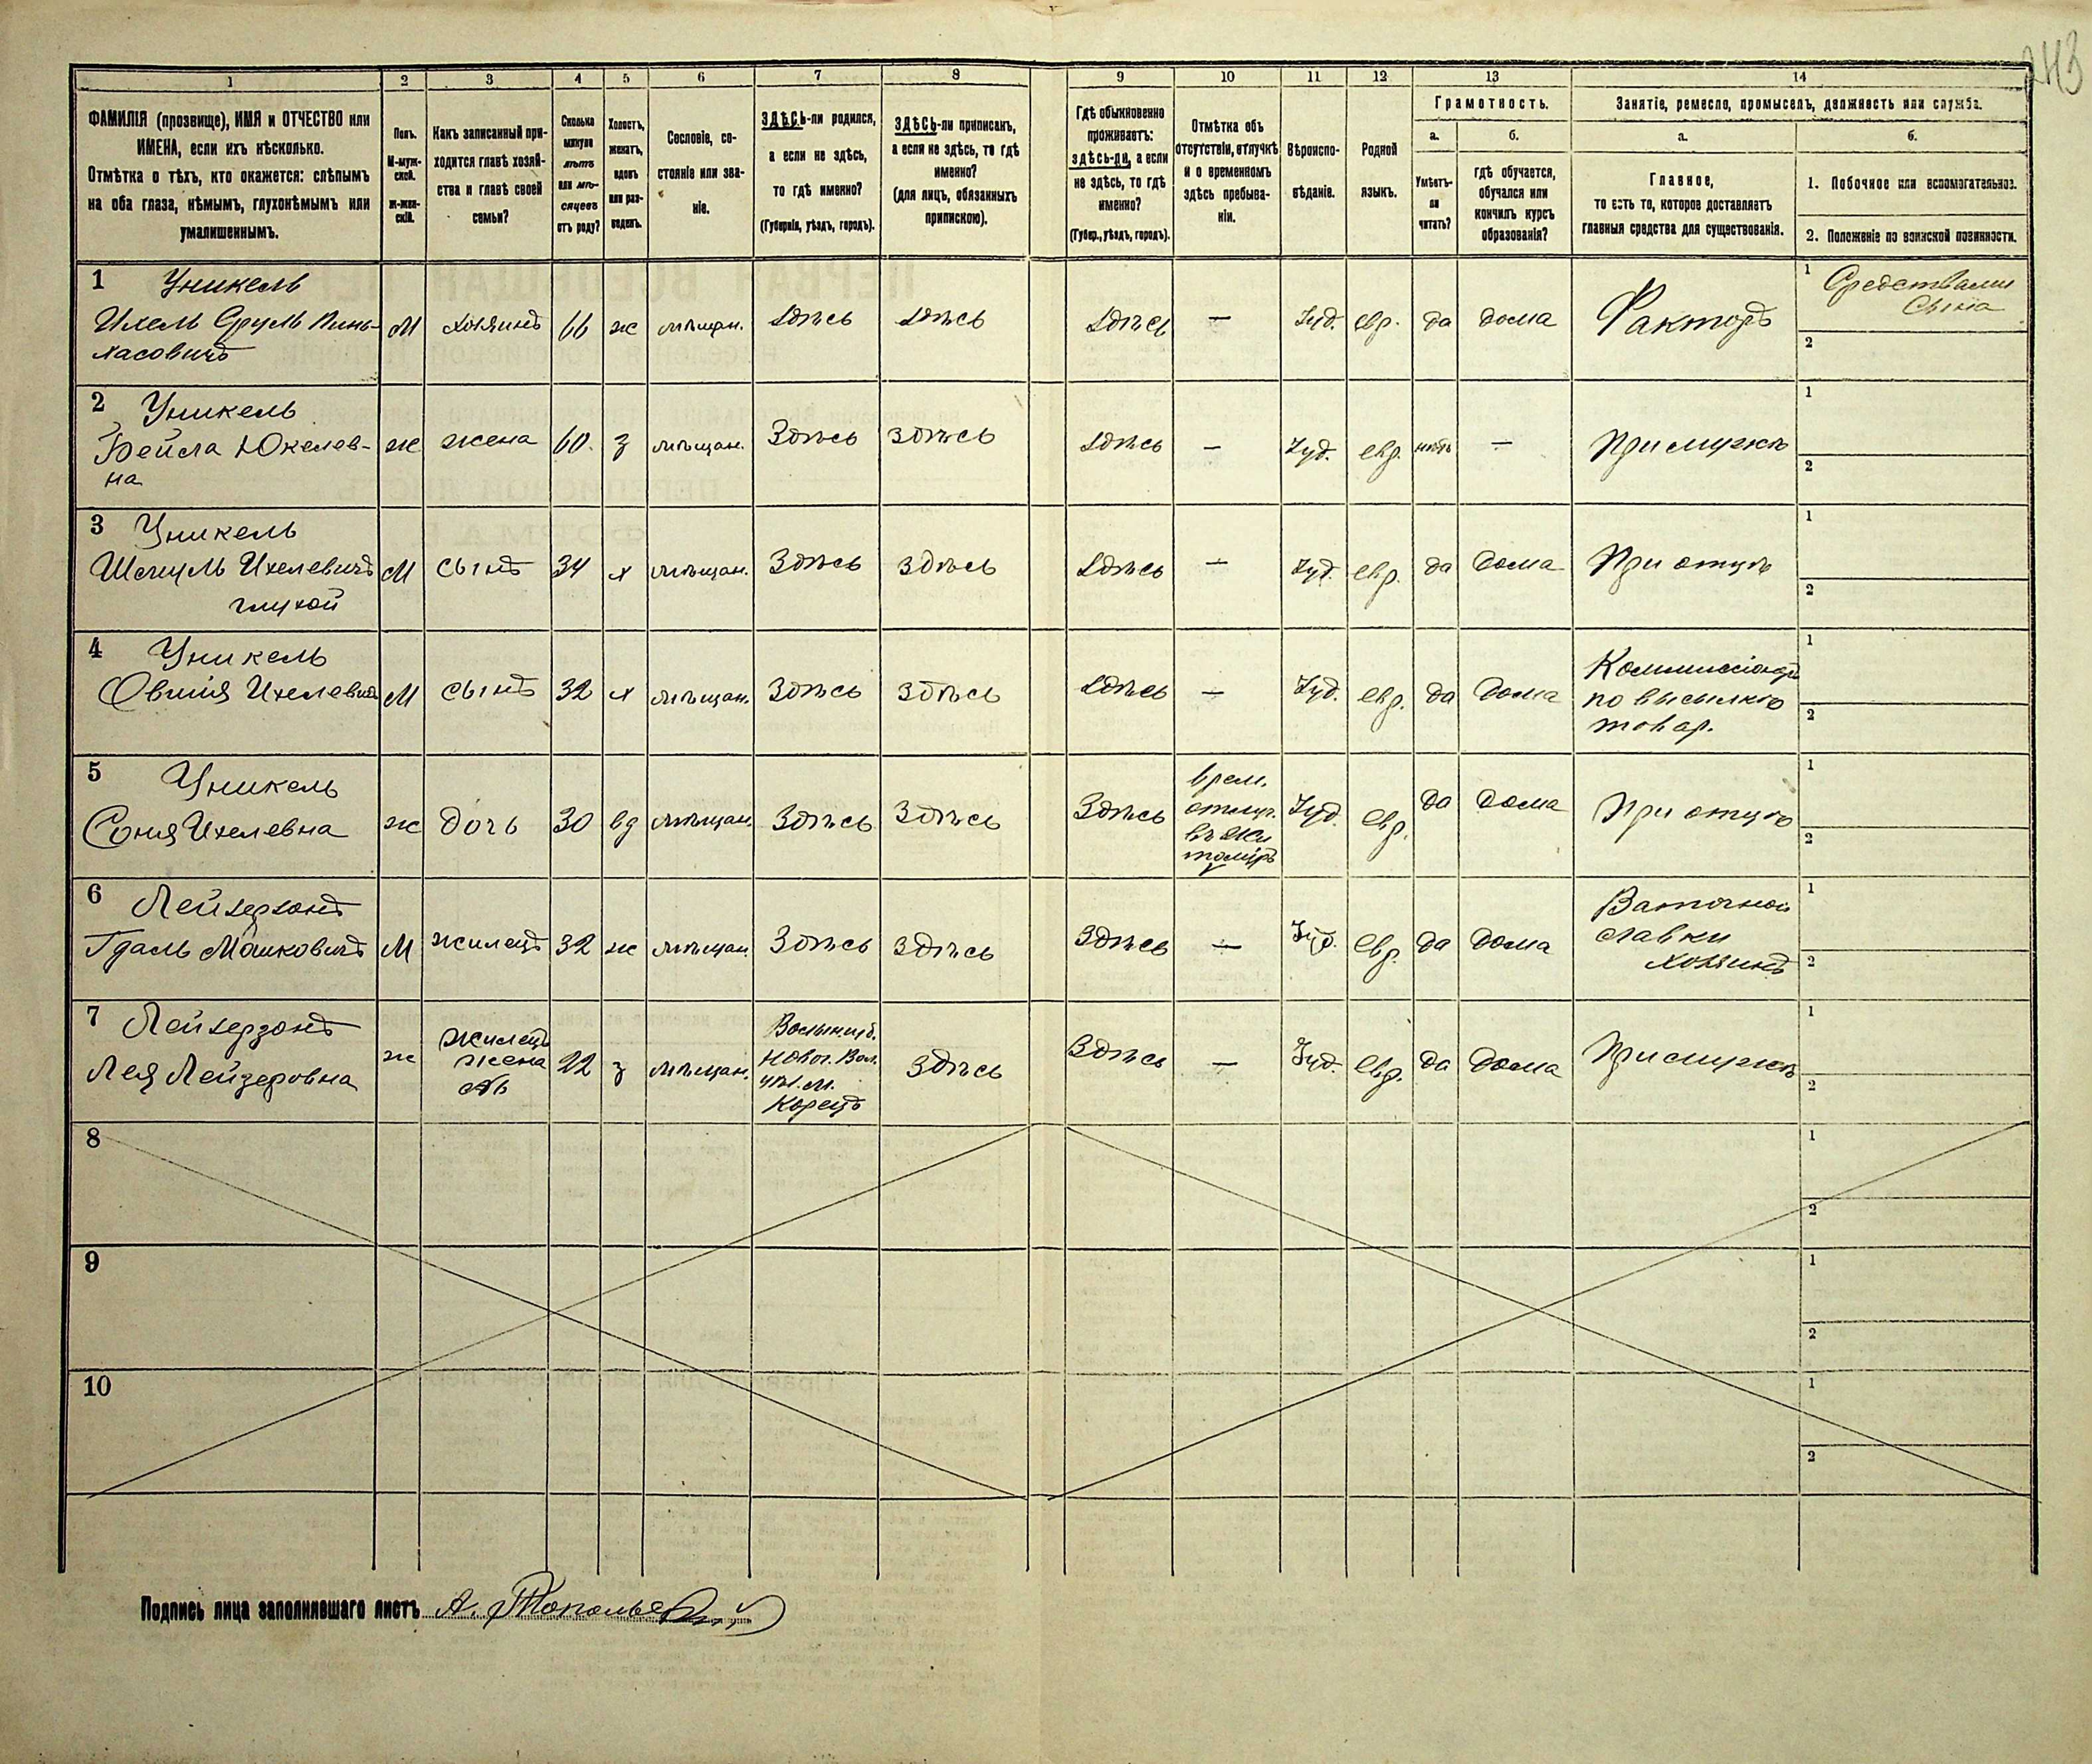 243
1
2
3
4
5
6
7
8
9
10
11
12
13
14
ФАМИЛІЯ (прозвище), ИМЯ и ОТЧЕСТВО или
ИМЕНА, если ихъ нѣсколько.
Отмѣтка о тѣхъ, кто окажется: слѣпымъ
на оба глаза, нѣмымъ, глухонѣмымъ или
умалишеннымъ.
Полъ.
М-муж-
ской.
ж-жен-
скій.
Какъ записанный при-
ходится главѣ хозяй-
ства и главѣ своей
семьи?
Сколько
минуло
лѣтъ
или мѣ-
сяцевъ
отъ роду?
Холостъ,
женатъ,
вдовъ
или раз-
веденъ.
Сословіе, со-
стояніе или зва-
ніе.
ЗДѢСЬ-ли родился,
а если не здѣсь,
то гдѣ именно?
(Губернія, уѣздъ, городъ).
ЗДѢСЬ-ли приписанъ,
а если не здѣсь, то гдѣ
именно?
(для лицъ, обязанныхъ
припискою).
Гдѣ обыкновенно
проживаетъ:
здѣсь-ли, а если
не здѣсь, то гдѣ
именно?
(Губер., уѣздъ, городъ).
Отмѣтка объ
отсутствіи, отлучкѣ
и о временномъ
здѣсь пребыва-
ніи.
Вѣроиспо-
вѣданіе.
Родной
языкъ.
Грамотность.
а.
Умѣетъ-
ли
читать?
б.
гдѣ обучается,
обучался или
кончилъ курсъ
образованія?
Занятіе, ремесло, промыселъ, должность или служба.
а.
Главное,
то есть то, которое доставляетъ
главныя средства для существованія.
б.
1. Побочное или вспомогательное.
2. Положеніе по воинской повинности.
1 Уникель
Ихель Сруль Пинь-
хасовичъ
М
хозяинъ
66
ж
мѣщан.
Здѣсь
Здѣсь
Здѣсь
—
Іуд.
евр.
да
дома
Факторъ
1 Средствами
сына
2
2 Уникель
Бейла Юкелев-
на
ж
жена
60.
з
мѣщан.
Здѣсь
Здѣсь
Здѣсь
—
Іуд.
евр.
нѣтъ
—
При мужѣ
1
2
3 Уникель
Шмуль Ихелевичъ
глухой
М
сынъ
34
х
мѣщан.
Здѣсь
Здѣсь
Здѣсь
—
Іуд.
евр.
да
дома
При отцѣ
1
2
4 Уникель
Овшія Ихелевичъ
М
сынъ
32
х
мѣщан.
Здѣсь
Здѣсь
Здѣсь
—
Іуд.
евр.
да
дома
Коммиссіонер
по высылкѣ
товар.
1
2
5 Уникель
Соня Ихелевна
ж
дочь
30
вд
мѣщан.
Здѣсь
Здѣсь
Здѣсь
врем.
отлуч.
въ Жи
томіръ
Іуд.
евр.
да
дома
При отцѣ
1
2
6 Лейзерзонъ
Гдаль Мошковичъ
М
жилецъ
32
ж
мѣщан.
Здѣсь
Здѣсь
Здѣсь
—
Іуд.
евр.
да
дома
лавки
хозяинъ
1
2
7 Лейзерзонъ
Лея Лейзеровна
ж
жилец
жена
22
з
мѣщан.
Волын. губ.
Новог. Вол.
уѣз. м.
Корецъ
Здѣсь
Здѣсь
—
Іуд.
евр.
да
дома
При мужѣ
1
2
8
1
2
9
1
2
10
1
2
Подпись лица заполнившаго листъ А.